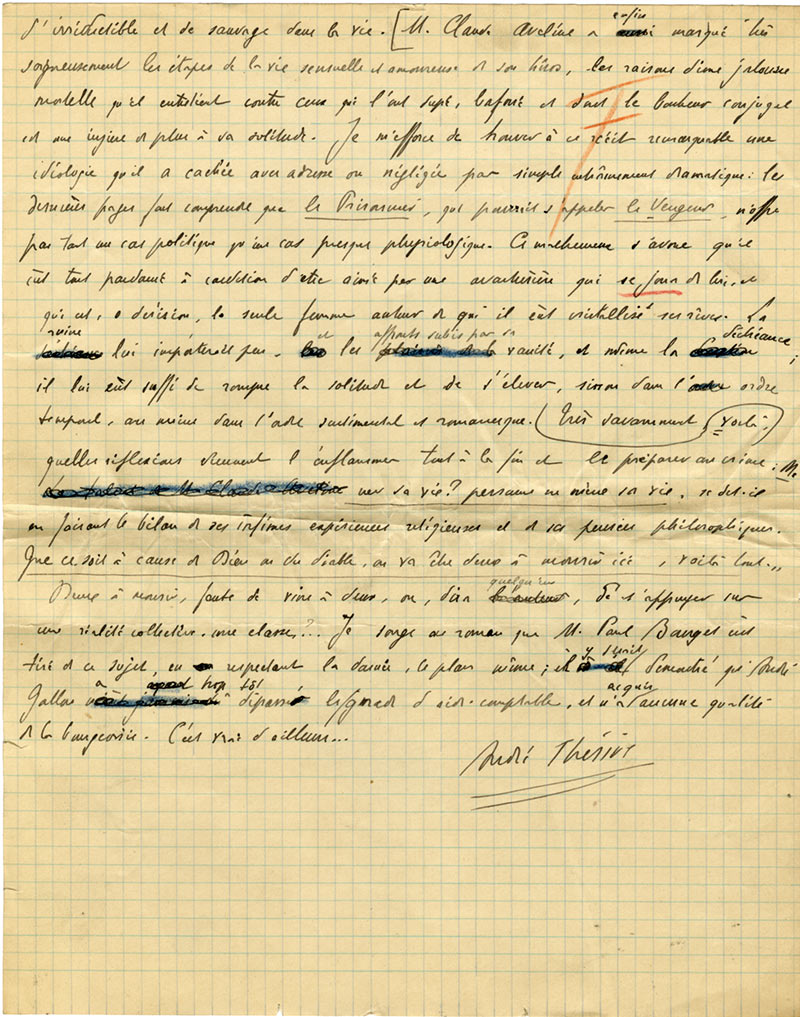 d'irréductible et de sauvage dans la vie. [M. Claude Aveline a enfin marqué très
soigneusement les étapes de la vie sensuelle et amoureuse de son héros, les raisons d'une jalousie
mortelle qu'il entretient contre ceux qui l'ont dupé, bafoué et dont le bonheur conjugal
est une injure de plus à sa solitude. Je m'efforce de trouver à ce récit remarquable une
idéologie qu'il a cachée avec adresse ou négligée par simple entraînement dramatique : les
dernières pages font comprendre que le Prisonnier, qui pourrait s'appeler le Vengeur, n'offre
pas tant un cas politique qu'un cas presque physiologique. Ce malheureux s'avoue qu'il
eût tout pardonné à condition d'être aimé par une aventurière qui se joua de lui, et
qui est, ô dérision, la seule femme autour de qui il eût cristallisé ses rêves. La
ruine lui importerait peu, et les affronts subis par sa vanité, et même la déchéance ;
il lui eût suffi de rompre la solitude et de s'élever, sinon dans l'ordre
temporel, au moins dans l'ordre sentimental et romanesque. (Très savamment, voilà,)
quelles réflexions viennent l'enflammer tout à la fin et le préparer au crime : Me
user sa vie ? personne ne mène sa vie, se dit-il
en faisant le bilan de ses infimes expériences religieuses et de ses pensées philosophiques.
Que ce soit à cause de Dieu ou du diable, on va être deux à mourir ici, voilà tout...
Deux à mourir, faute de vivre à deux, ou, dira quelqu'un, de s'appuyer sur
une réalité collective, une classe ?... Je songe au roman que M. Paul Bourget eût
tiré de ce sujet, en respectant la donnée, le plan même ; il y serait démontré que André
Gallou a trop tôt dépassé le grade d'aide-comptable, et n'a acquis aucune qualité
de la bourgeoisie. C'est vrai d'ailleurs...
André Thérive